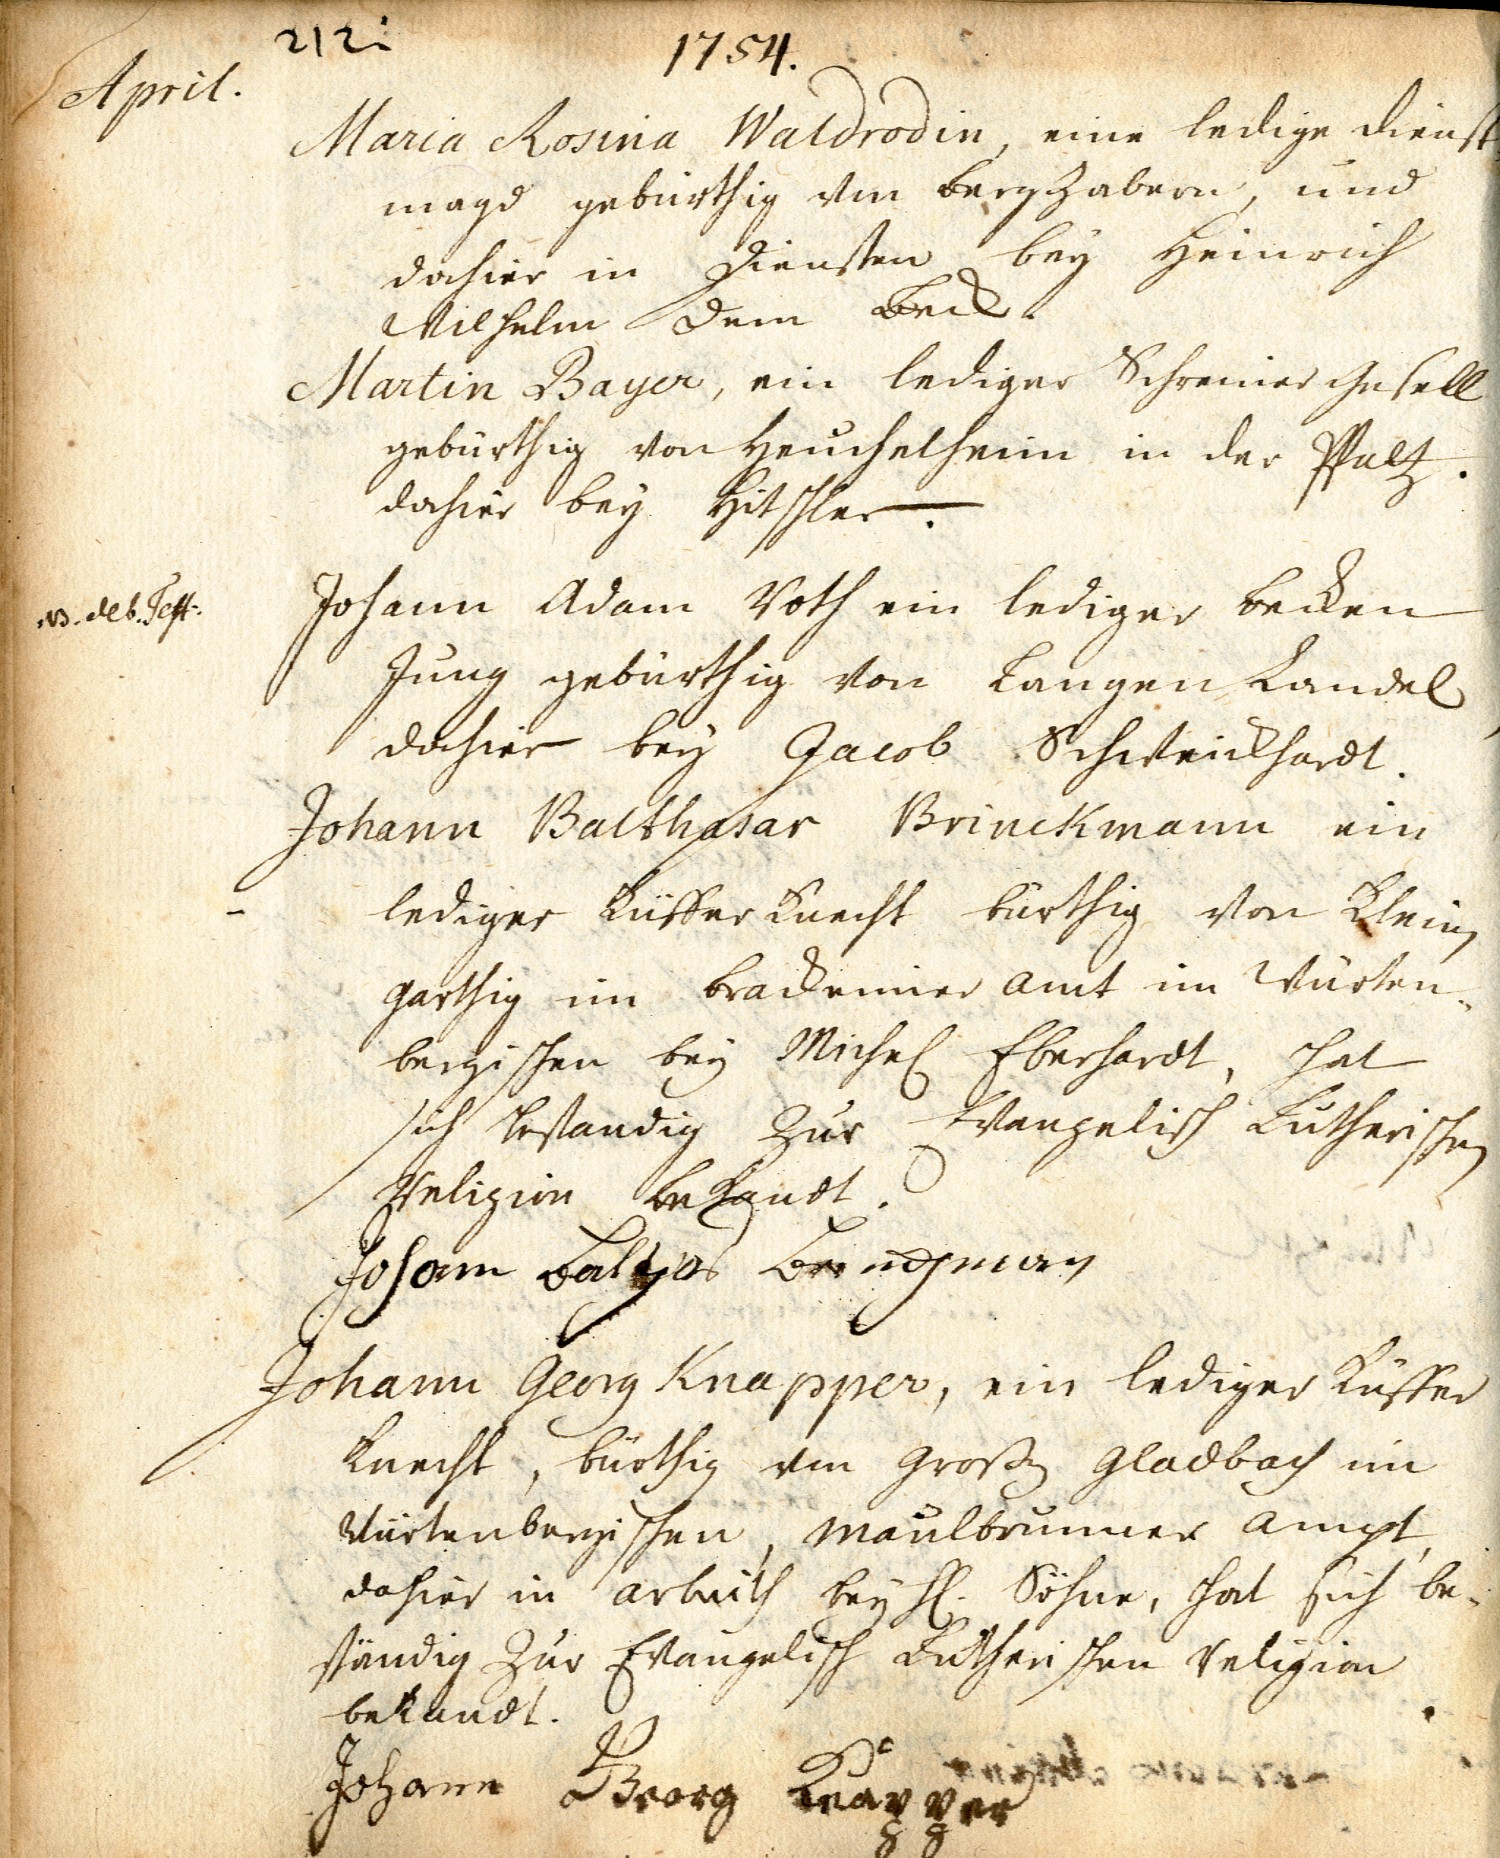 212
1754.
April.
Maria Rosina Waldrodin, eine ledige dienst
magd gebürthig von Bergzabern, und
dahier in Diensten bey Heinrich
Wilhelm dem Beck.
Martin Bayer, ein lediger Schreiner Gesell
gebürthig von Heuchelheim in der Pfaltz.
dahier bey Hitschler.
NB. deb. Test:
Johann Adam Voth ein lediger Becken
Jung gebürthig von Langen Kandel
dahier bey Jacob Schweickhardt.
Johann Balthasar Brinckmann ein
lediger Küffer Knecht bürthig von Klein
garthig im Brackenheimer Amt im Würten-
bergischen bey Michel Eberhardt, hat
sich bestandig zur Evangelisch Lutherischen
Religion bekandt.
Johann Baltas
Johann Georg Knapper, ein lediger Küffer
Knecht, bürthig von Groß Gladbach im
Würtenbergischen, Maulbrunner Ampt,
dahier in arbeith bey H. Söhne, hat sich be-
ständig zur Evangelisch Lutherischen Religion
bekandt.
Johann Georg Knapper